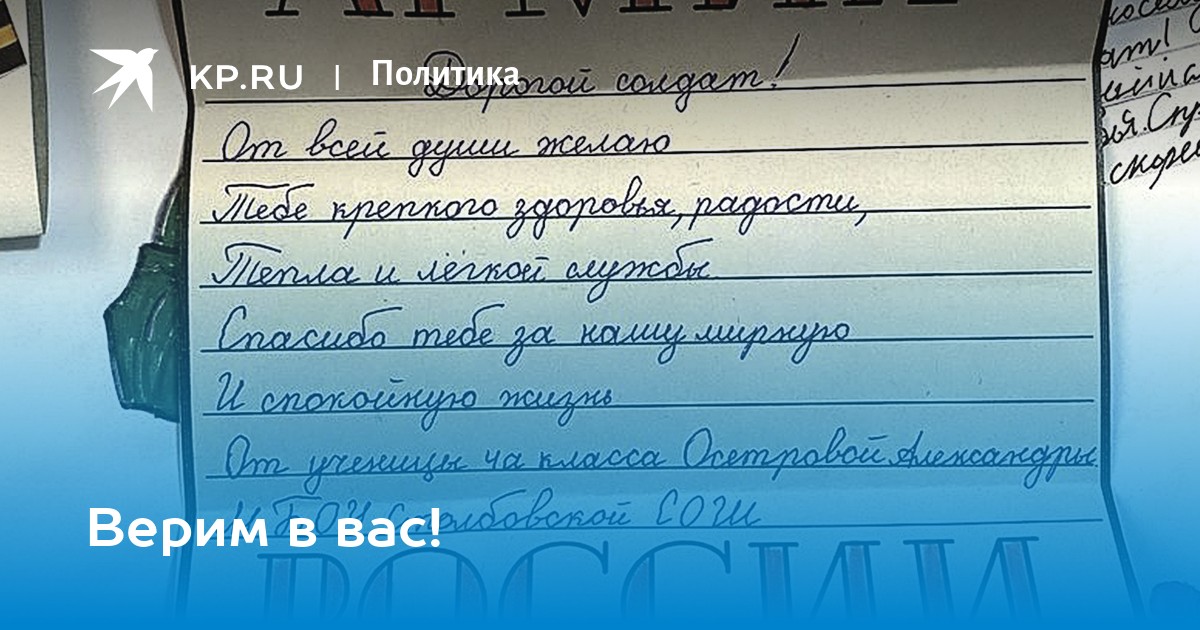 АРМИИ
KP.RU | Политика
Дорогой солдат!
От всей души желаю
Тебе крепкого здоровья, радости,
Тепла и лёгкой службы
Спасибо тебе за нашу мирную
И спокойную жизнь
От ученицы 4а класса Осетровой Александры
МБОУ Столбовской СОШ
Верим в вас!
РОССИИ
скорее